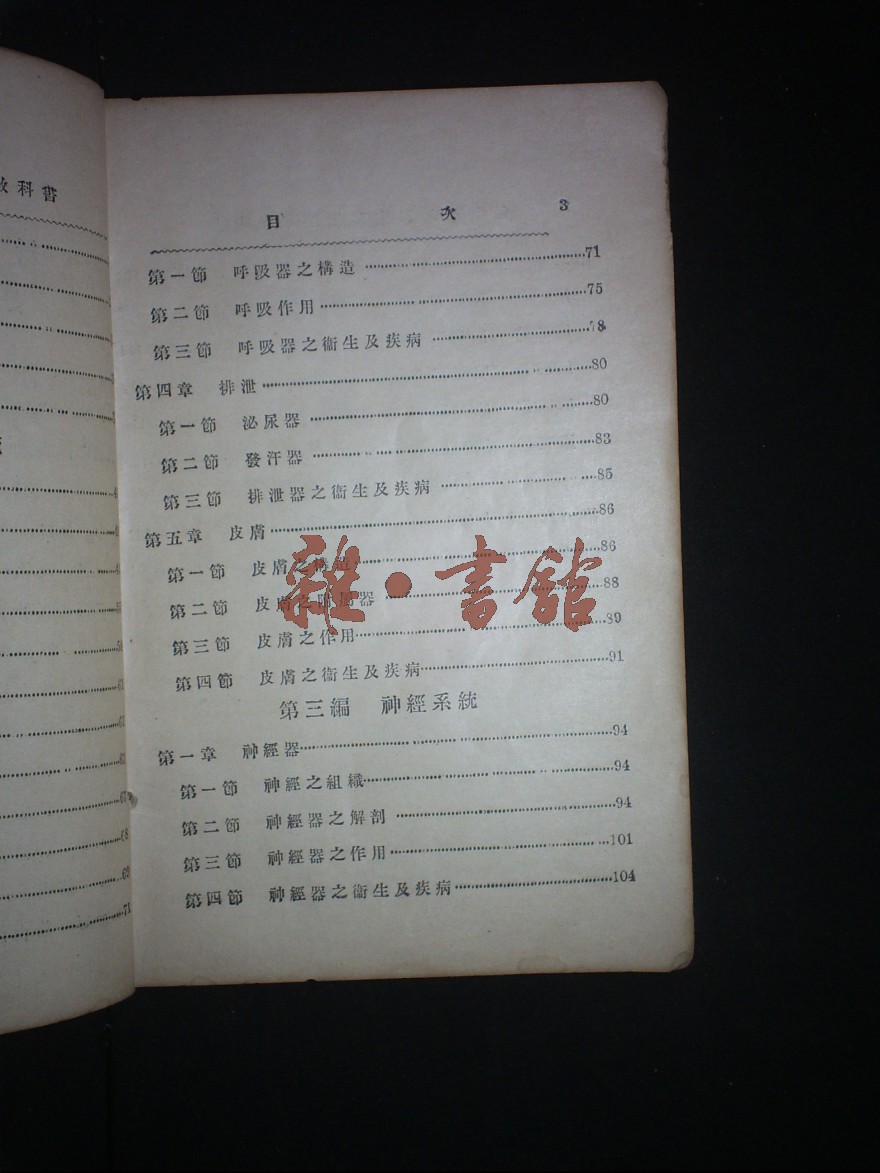 教科書
目次 3
第一節 呼吸器之構造 71
第二節 呼吸作用 75
第三節 呼吸器之衞生及疾病 78
第四章 排泄 80
第一節 泌尿器 80
第二節 發汗器 83
第三節 排泄器之衞生及疾病 85
第五章 皮膚 86
第一節 皮膚之構造 86
第二節 皮膚之附屬器 88
第三節 皮膚之作用 89
第四節 皮膚之衞生及疾病 91
第三編 神經系統
第一章 神經器 94
第一節 神經之組織 94
第二節 神經器之解剖 94
第三節 神經器之作用 101
第四節 神經器之衞生及疾病 104
雜·書館
61
67
68
69
71